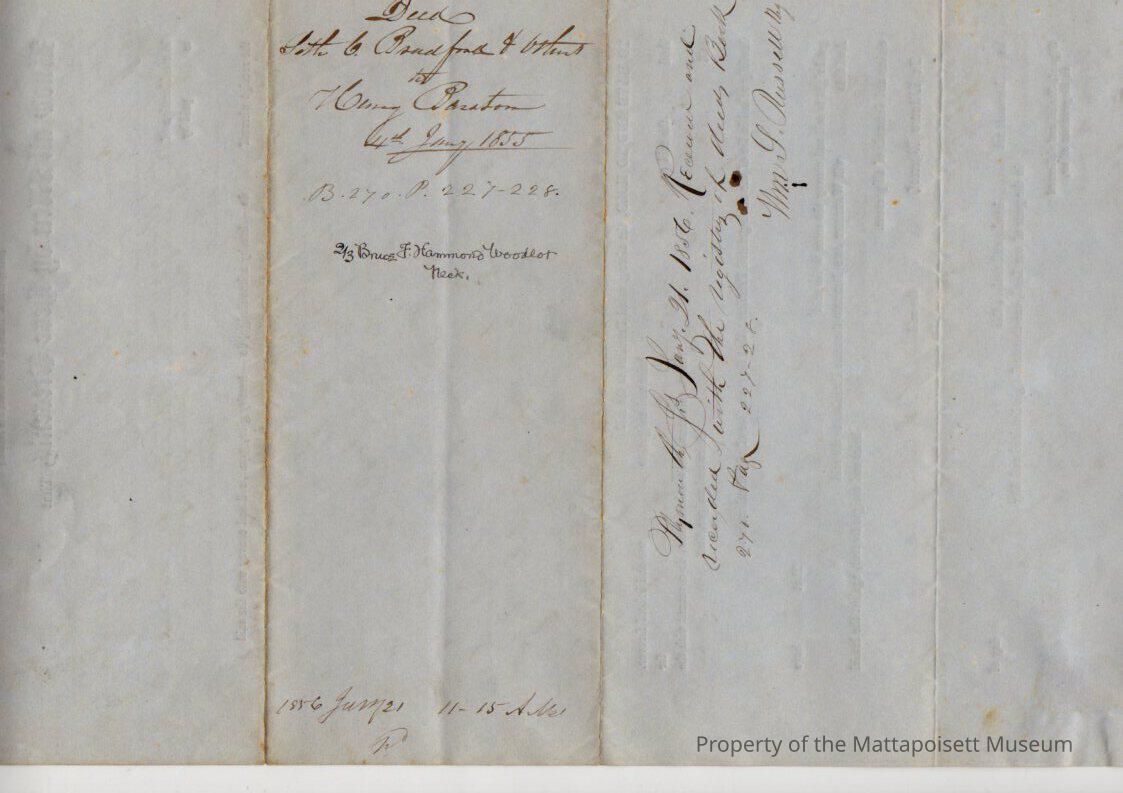 Deed
Seth C. Bradford & Others
to
Henry Barstow
4th Jany 1855
B. 270. P. 227-228.
2/3 Bruce F. Hammond Woodlot
Neck.
1856 Jany 21 11-15 A.M.
Plymouth Ss Jany 21. 1856. Received and
recorded with the registry of deeds Book
270. Page 227-28.
Wm S. Russell
Property of the Mattapoisett Museum